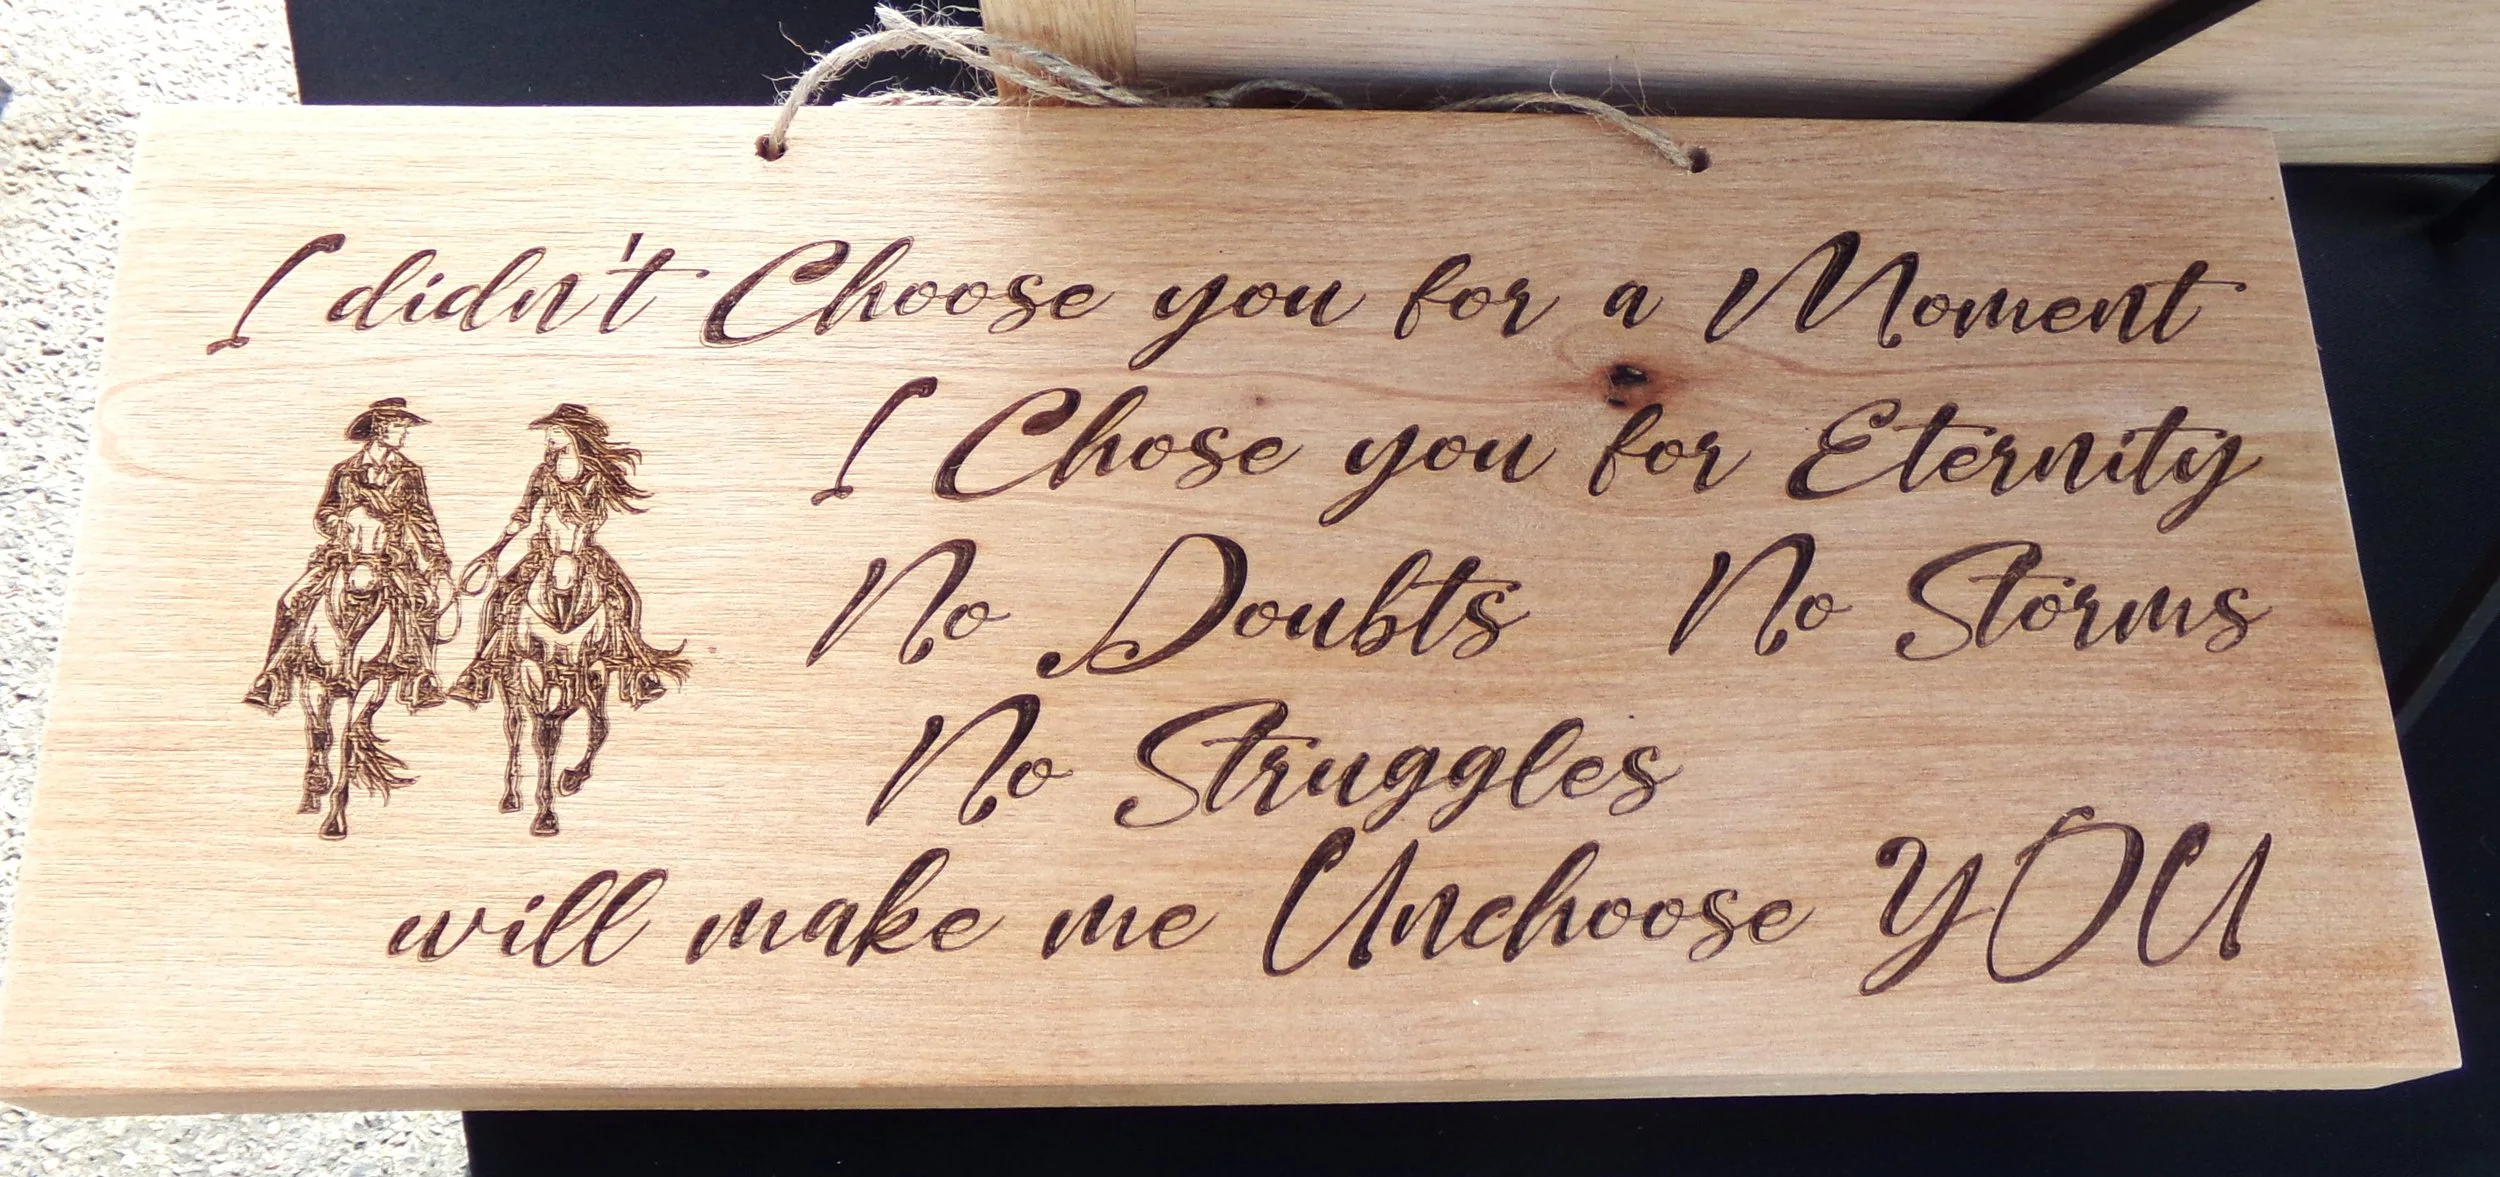 I didn't Choose you for a Moment
I Chose you for Eternity
No Doubts No Storms
No Struggles
will make me Unchoose YOU